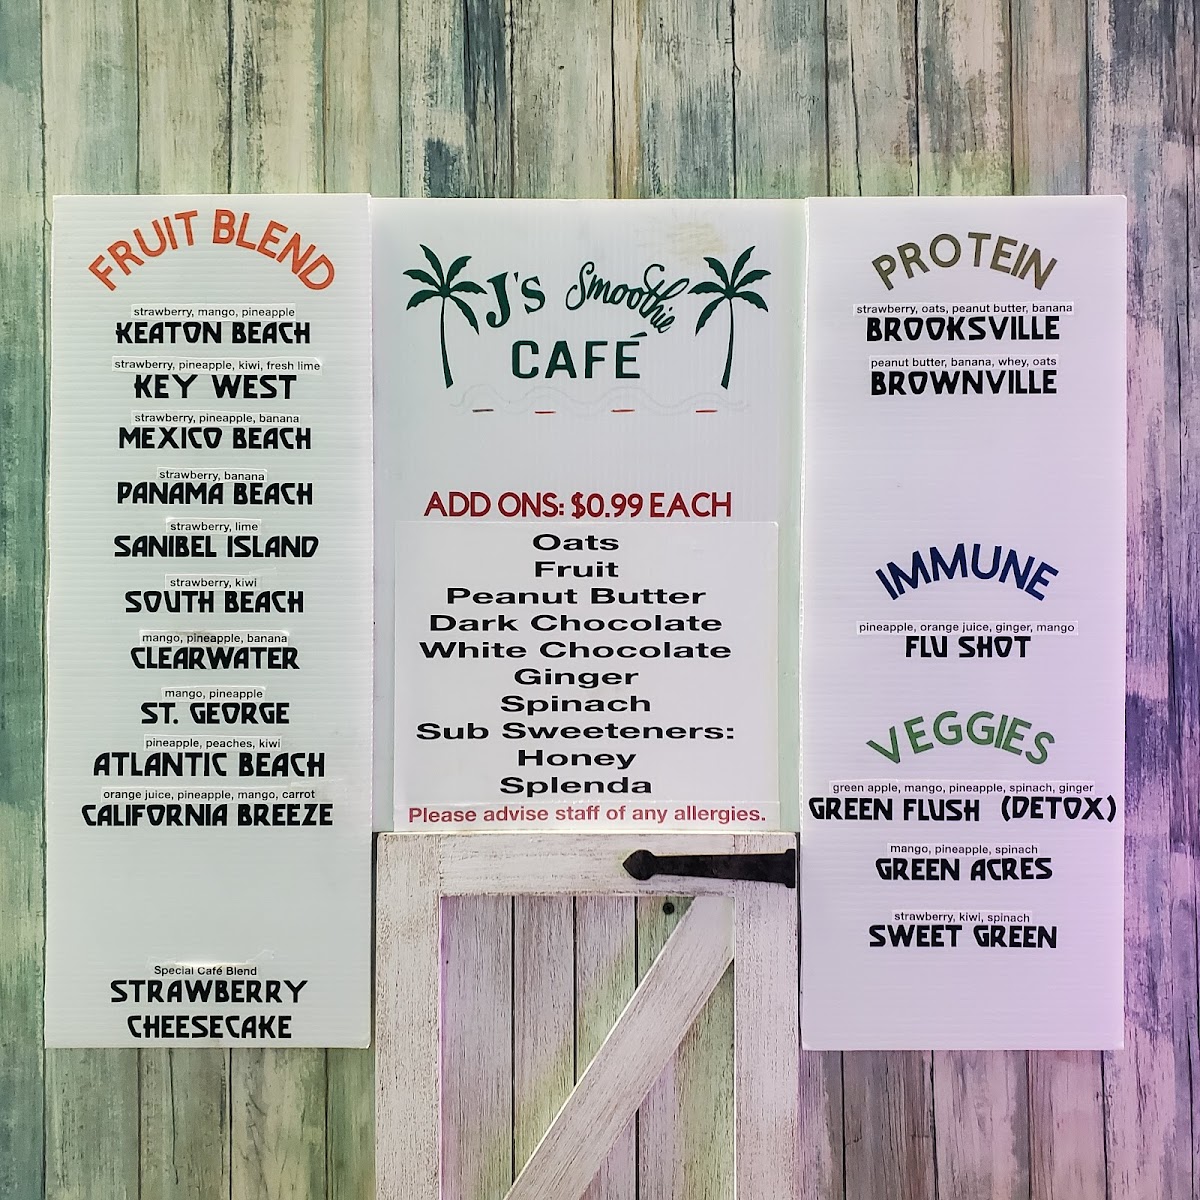 FRUIT BLEND
strawberry, mango, pineapple
KEATON BEACH
strawberry, pineapple, kiwi, fresh lime
KEY WEST
strawberry, pineapple, banana
MEXICO BEACH
strawberry, banana
PANAMA BEACH
strawberry, lime
SANIBEL ISLAND
strawberry, kiwi
SOUTH BEACH
mango, pineapple, banana
CLEARWATER
mango, pineapple
ST. GEORGE
pineapple, peaches, kiwi
ATLANTIC BEACH
orange juice, pineapple, mango, carrot
CALIFORNIA BREEZE
Special Café Blend
STRAWBERRY
CHEESECAKE
J's Smoothie
CAFÉ
ADD ONS: $0.99 EACH
Oats
Fruit
Peanut Butter
Dark Chocolate
White Chocolate
Ginger
Spinach
Sub Sweeteners:
Honey
Splenda
Please advise staff of any allergies.
PROTEIN
strawberry, oats, peanut butter, banana
BROOKSVILLE
peanut butter, banana, whey, oats
BROWNVILLE
IMMUNE
pineapple, orange juice, ginger, mango
FLU SHOT
VEGGIES
green apple, mango, pineapple, spinach, ginger
GREEN FLUSH (DETOX)
mango, pineapple, spinach
GREEN ACRES
strawberry, kiwi, spinach
SWEET GREEN